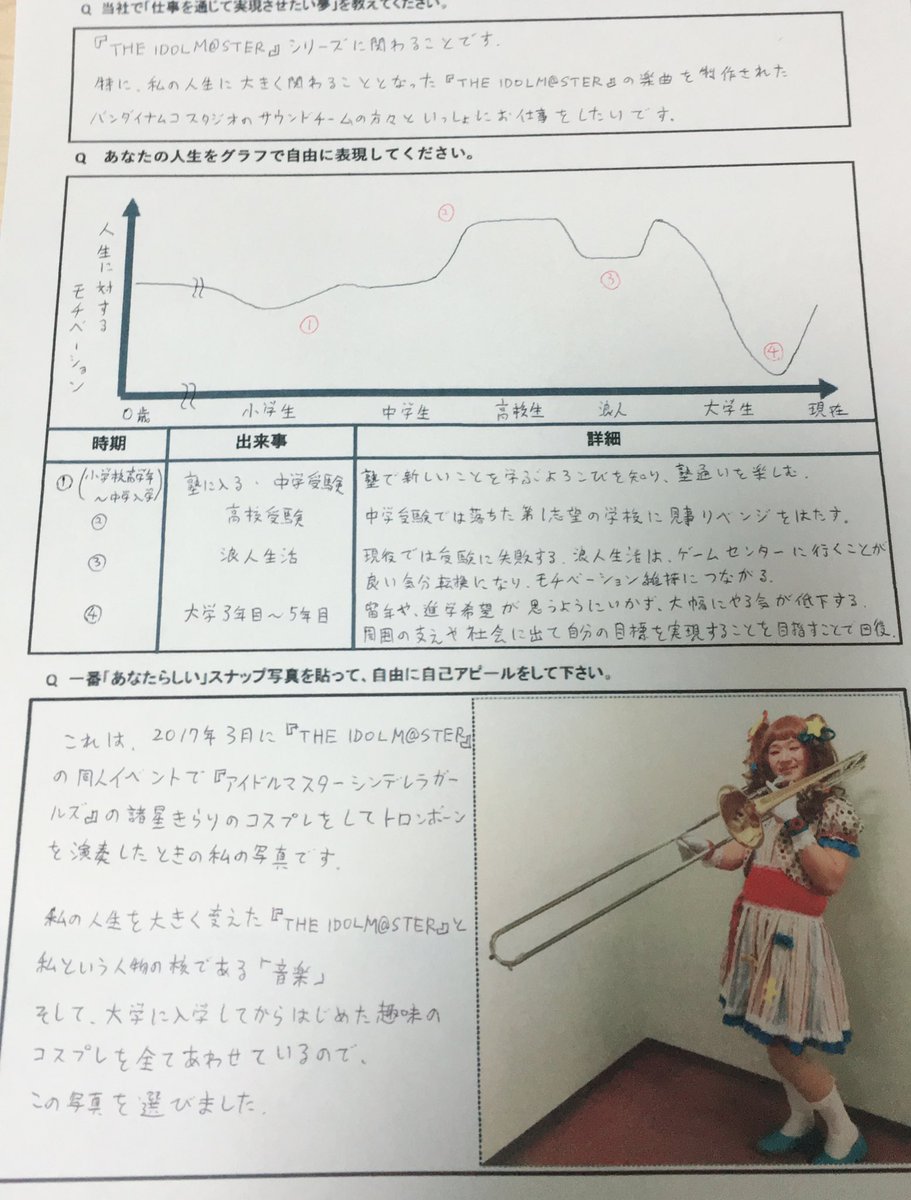 Q 当社で「仕事を通じて実現させたい夢」を教えてください。
『THE IDOLM@STER』シリーズに関わることです。
特に、私の人生に大きく関わることとなった『THE IDOLM@STER』の楽曲を制作された
バンダイナムコスタジオのサウンドチームの方々といっしょにお仕事をしたいです。
Q あなたの人生をグラフで自由に表現してください。
人生に対する
モチベーション
②
③
①
④
0歳 小学生 中学生 高校生 浪人 大学生 現在
時期 出来事 詳細
① (小学校高学年 ～中学入学) 塾に入る・中学受験 塾で新しいことを学ぶよろこびを知り、塾通いを楽しむ。
② 高校受験 中学受験では落ちた第1志望の学校に見事リベンジをはたす。
③ 浪人生活 現役では受験に失敗する。浪人生活は、ゲームセンターに行くことが
良い気分転換になり、モチベーション維持につながる。
④ 大学3年目～5年目 留年や、進学希望が思うようにいかず、大幅にやる気が低下する。
周囲の支えや社会に出て自分の目標を実現することを目指すことで回復。
Q 一番「あなたらしい」スナップ写真を貼って、自由に自己アピールをして下さい。
これは、2017年3月に『THE IDOLM@STER』
の同人イベントで『アイドルマスターシンデレラガー
ルズ』の諸星きらりのコスプレをしてトロンボーン
を演奏したときの私の写真です。
私の人生を大きく変えた『THE IDOLM@STER』と
私という人物の核である「音楽」
そして、大学に入学してからはじめた趣味の
コスプレを全てあわせているので、
この写真を選びました。